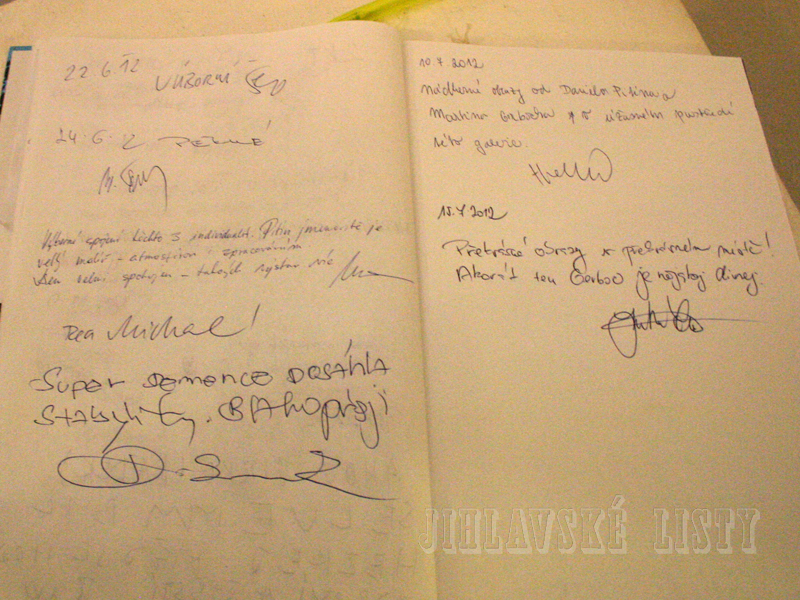 22.6.12
VÝBORNÉ
24.6.12 PĚKNÉ
Výborné spojení těchto 3 individualit. Pitin jmenovitě je
velký malíř - atmosférou i zpracováním
Jsem velmi spokojen - takových výstav víc
Michal!
SUPER DEMENCE DOSÁHLA
STABILITY. BLAHOPŘEJI
10.7.2012
Nádherné obrazy od Daniela Pitina a
Martina v úžasném prostředí
této galerie.
15.7.2012
Překrásné obrazy v překrásném městě!
Akorát ten Gerboc je nějakej divnej.
JIHLAVSKÉ LISTY